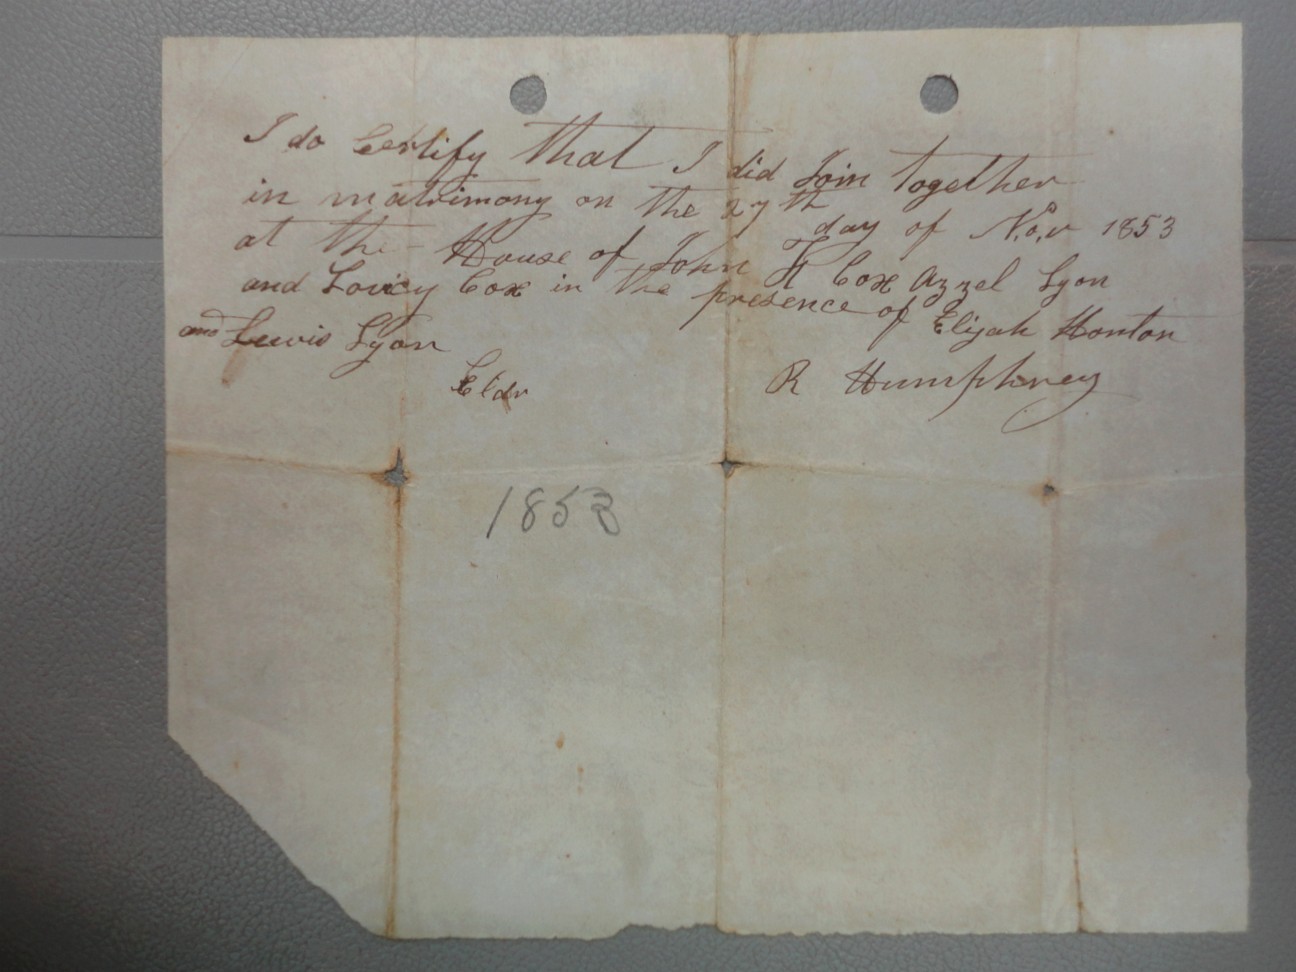 I do Certify that I did Join together
in matrimony on the 27th day of Nov 1853
at the House of John H Cox Azzel Lyon
and Lovicy Cox in the presence of Elijah Honton
and Lewis Lyon
Eldr R Humphrey
1853